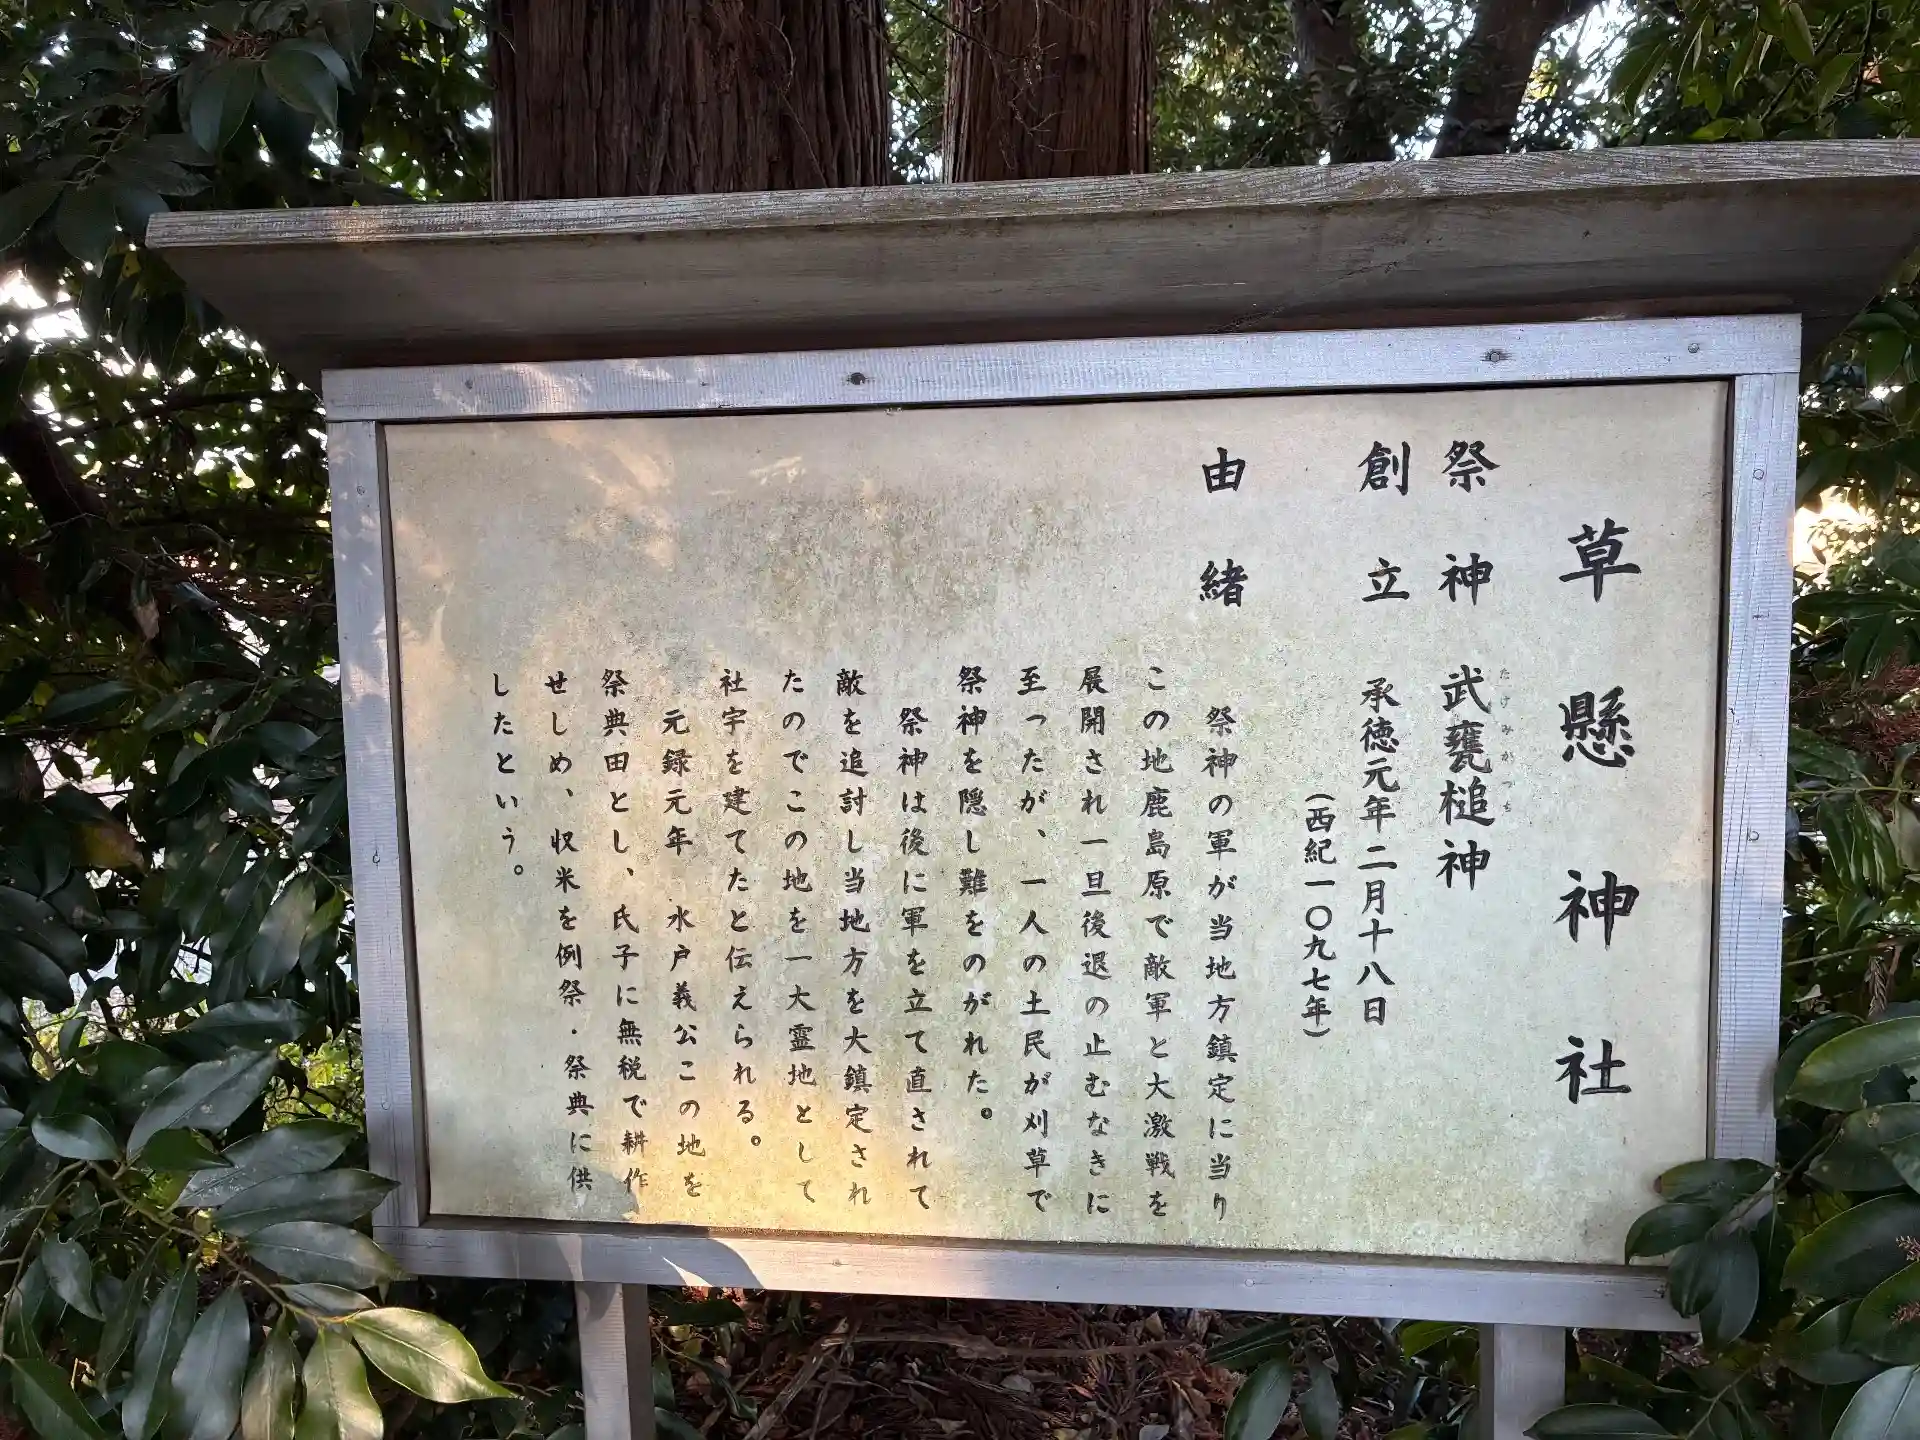 草懸神社
祭神 武甕槌神
たけみかつち
創立 承徳元年二月十八日
(西紀一〇九七年)
由緒
祭神の軍が当地方鎮定に当り
この地鹿島原で敵軍と大激戦を
展開され一旦後退の止むなきに
至ったが、一人の土民が刈草で
祭神を隠し難をのがれた。
祭神は後に軍を立て直されて
敵を追討し当地方を大鎮定され
たのでこの地を一大霊地として
社宇を建てたと伝えられる。
元録元年 水戸義公この地を
祭典田とし、氏子に無税で耕作
せしめ、収米を例祭・祭典に供
したという。